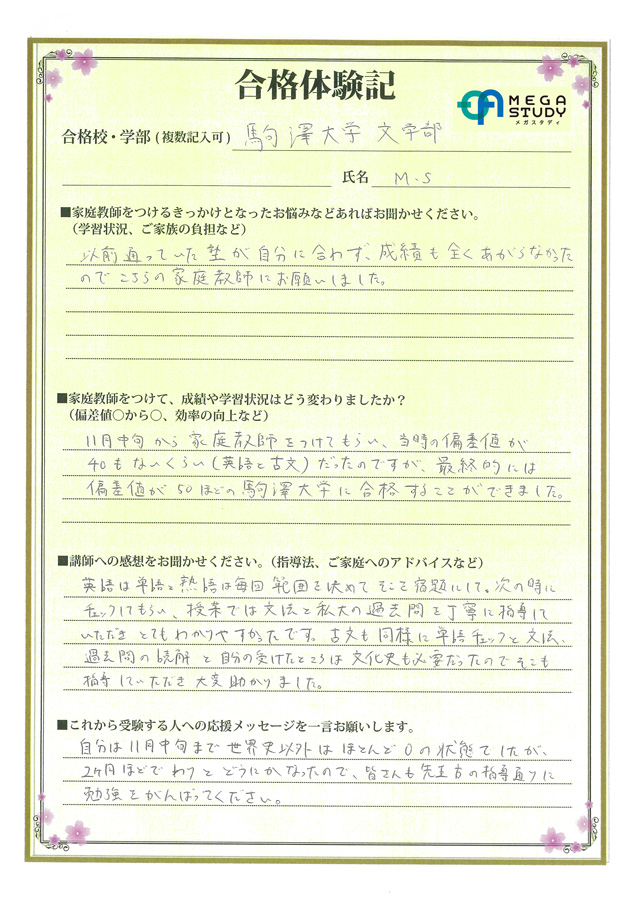 合格体験記
MEGA
STUDY
メガスタディ
合格校・学部(複数記入可) 駒澤大学 文学部
氏名 M.S
■家庭教師をつけるきっかけとなったお悩みなどあればお聞かせください。
(学習状況、ご家族の負担など)
以前通っていた塾が自分に合わず、成績も全くあがらなかった
のでこちらの家庭教師にお願いしました。
■家庭教師をつけて、成績や学習状況はどう変わりましたか？
(偏差値○から○、効率の向上など)
11月中旬から家庭教師をつけてもらい、当時の偏差値が
40もないくらい(英語と古文)だったのですが、最終的には
偏差値が50ほどの駒澤大学に合格することができました。
■講師への感想をお聞かせください。(指導法、ご家庭へのアドバイスなど)
英語は単語と熟語は毎回範囲を決めてそこを宿題にして、次の時に
チェックしてもらい、授業では文法と私大の過去問を丁寧に指導して
いただきとてもわかりやすかったです。古文も同様に単語チェックと文法、
過去問の読解と自分の受けたところは文化史も必要だったのでそこも
指導していただき大変助かりました。
■これから受験する人への応援メッセージを一言お願いします。
自分は11月中旬まで世界史以外はほとんど0の状態でしたが、
2ヶ月ほどでわりとどうにかなったので、皆さんも先生方の指導通りに
勉強をがんばってください。